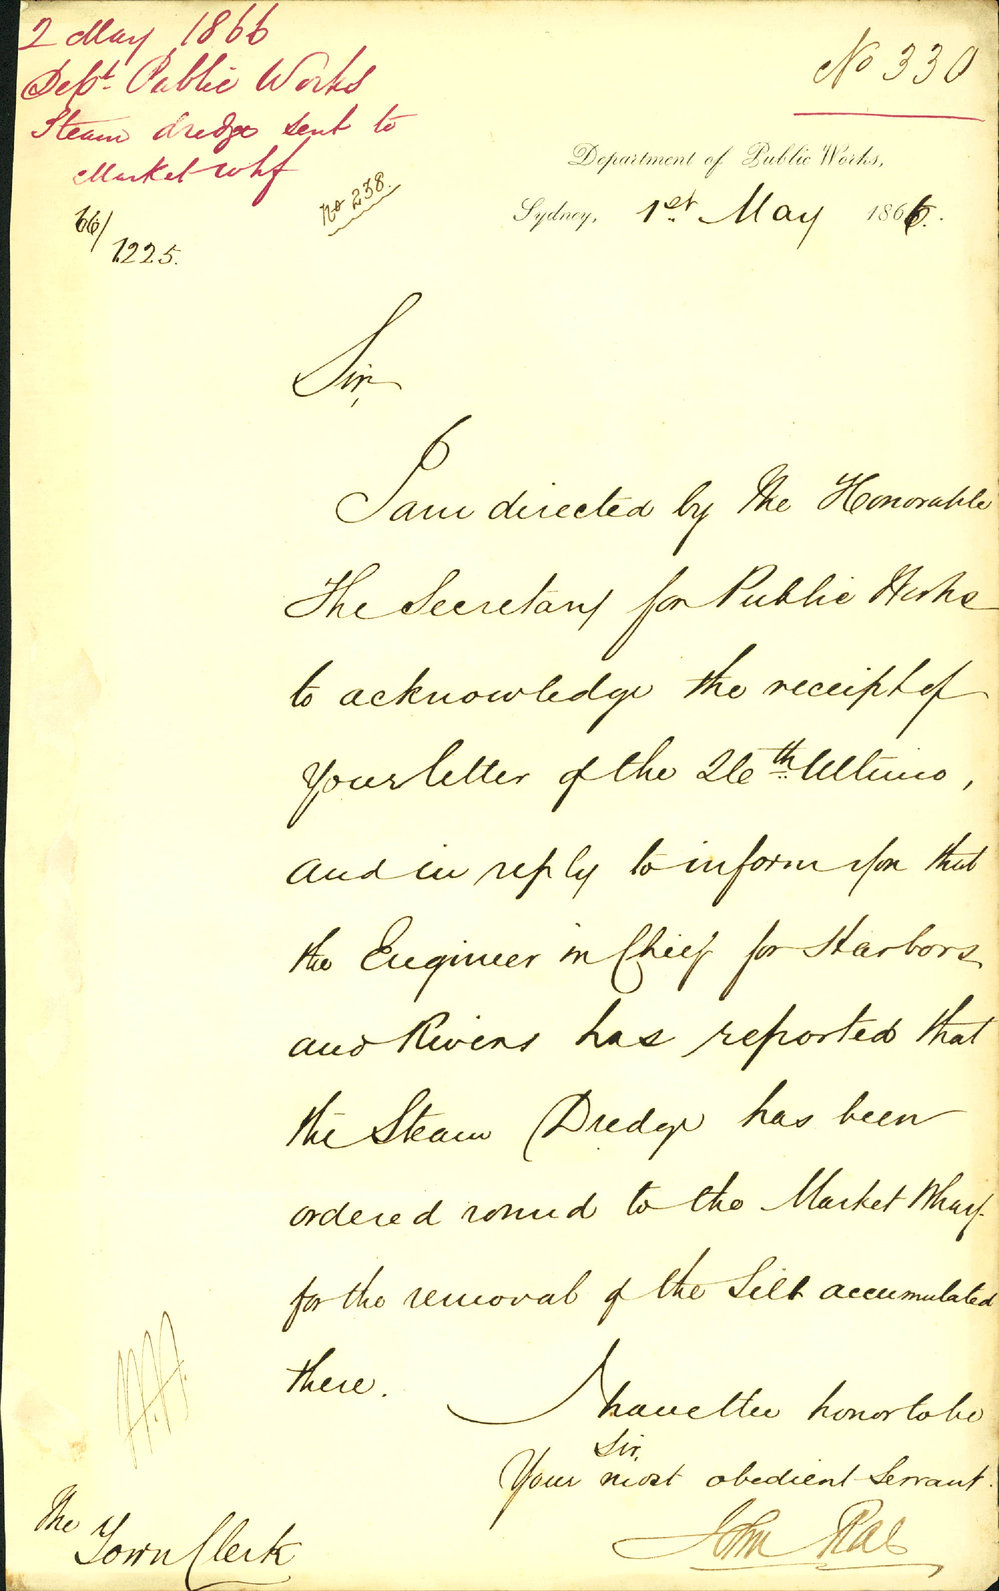 2 May 1866
Dept. Public Works
Steam dredge sent to
Market whf
66/
1225.
No 238.
No 330
Department of Public Works,
Sydney, 1st May 1866.
Sir,
I am directed by the Honorable
The Secretary for Public Works
to acknowledge the receipt of
your letter of the 26th Ultimo,
and in reply to inform you that
the Engineer in Chief for Harbors
and Rivers has reported that
the Steam Dredge has been
ordered round to the Market Wharf
for the removal of the Silt accumulated
there.
I have the honor to be
Sir,
Your most obedient Servant.
John Rae
The
Town Clerk